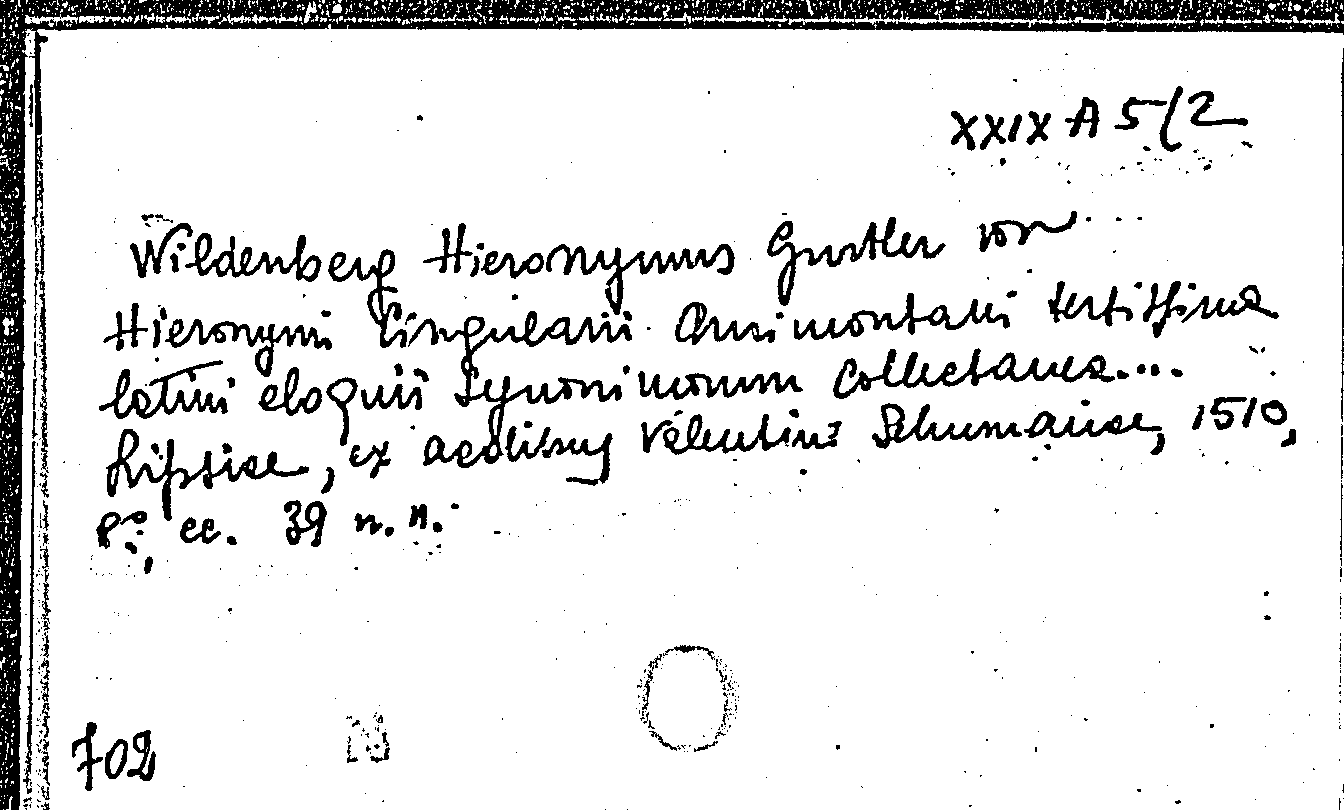 XXIX A 5/2
Wildenberg Hieronymus Gurtler von
Hieronymi Cingularii Aurimontani tertissima
latini eloquii Synonimorum collectanea....
Liptice, ex Valentini Schumance, 1510,
8°, cc. 39 n. n.
702
N